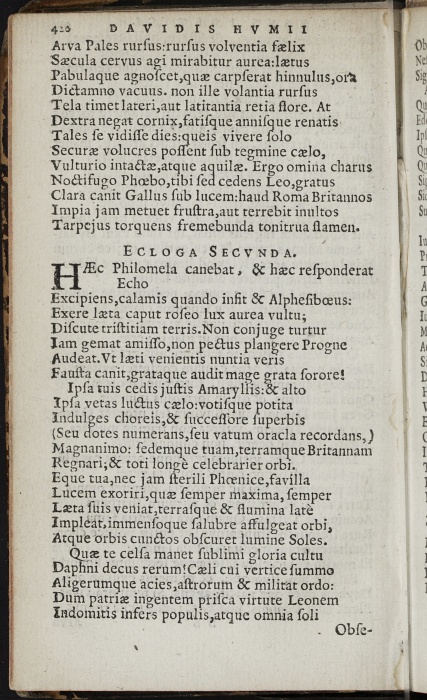 420 DAVIDIS HVMII
Arva Pales rurſus:rurſus volventia fælix
Sæcula cervus agi mirabitur aurea:lætus
Pabulaque agnoſcet,quæ carpſerat hinnulus,ora
Dictamno vacuus. non ille volantia rurſus
Tela timet lateri,aut latitantia retia flore. At
Dextra negat cornix,fatiſque anniſque renatis
Tales ſe vidiſſe dies:queis vivere ſolo
Securæ volucres poſſent ſub tegmine cælo,
Vulturio intactæ,atque aquilæ. Ergo omina charus
Noctifugo Phœbo,tibi ſed cedens Leo,gratus
Clara canit Gallus ſub lucem:haud Roma Britannos
Impia jam metuet fruſtra,aut terrebit inultos
Tarpejus torquens fremebunda tonitrua flamen.
ECLOGA SECVNDA.
HÆc Philomela canebat, & hæc reſponderat
Echo
Excipiens,calamis quando inſit & Alpheſibœus:
Exere læta caput roſeo lux aurea vultu;
Diſcute triſtitiam terris.Non conjuge turtur
Iam gemat amiſſo,non pectus plangere Progne
Audeat.Vt læti venientis nuntia veris
Fauſta canit,grataque audit mage grata ſorore!
Ipſa tuis cedis juſtis Amaryllis:& alto
Ipſa vetas luctus cælo:votiſque potita
Indulges choreis,& ſucceſſore ſuperbis
(Seu dotes numerans,ſeu vatum oracla recordans,)
Magnanimo: ſedemque tuam,terramque Britannam
Regnari;& toti longè celebrarier orbi.
Eque tua,nec jam ſterili Phœnice,favilla
Lucem exoriri,quæ ſemper maxima,ſemper
Læta ſuis veniat,terraſque & flumina latè
Impleat,immenſoque ſalubre aſſulgeat orbi,
Atque orbis cunctos obſcuret lumine Soles.
Quæ te celſa manet ſublimi gloria cultu
Daphni decus rerum!Cæli cui vertice ſummo
Aligerumque acies,aſtrorum & militat ordo:
Dum patriæ ingentem priſca virtute Leonem
Indomitis infers populis,atque omnia ſoli
Obſe-